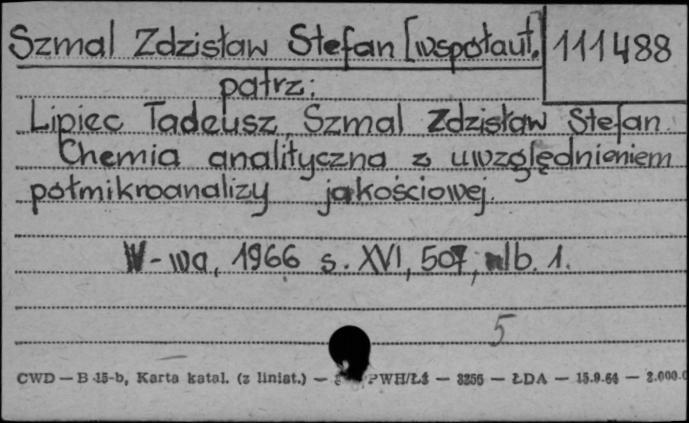 Szmal Zdzisław Stefan [współaut. 111488
patrz:
Lipiec Tadeusz, Szmal Zdzisław Stefan.
Chemia analityczna z uwzględnieniem
półmikroanalizy jakościowej.
W-wa, 1966 s. XVI, 507, nlb. 1.
5
CWD — B 15-b, Karta katal. (z liniat.) — PWH/Łź — 3256 — ŁDA — 15.9.64 — 2.000.0